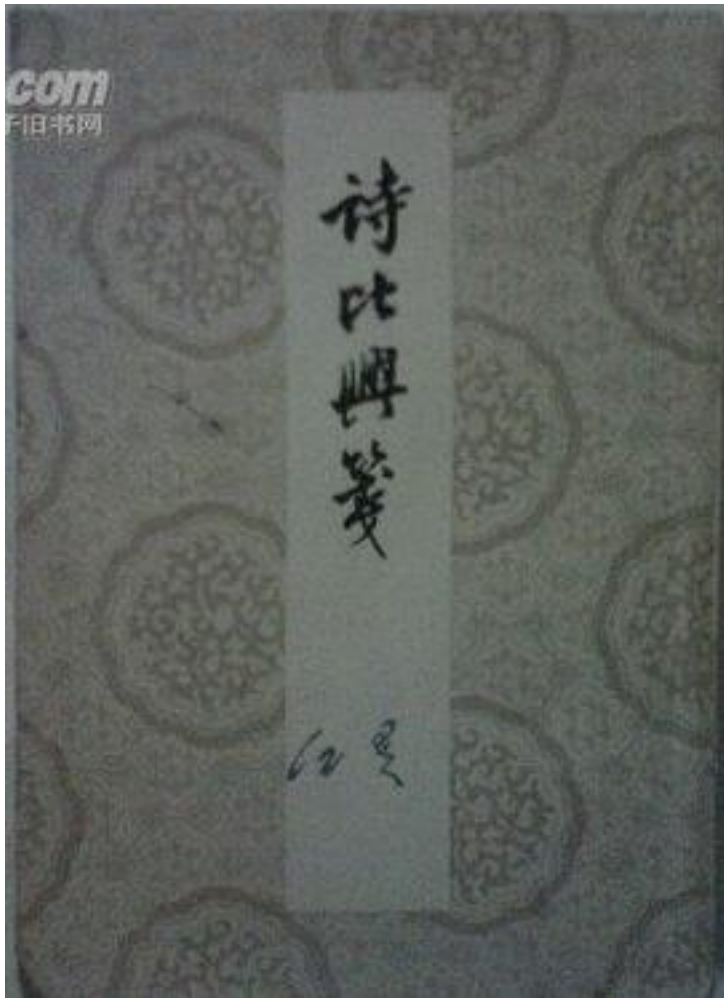 .com
旧书网
詩比興箋